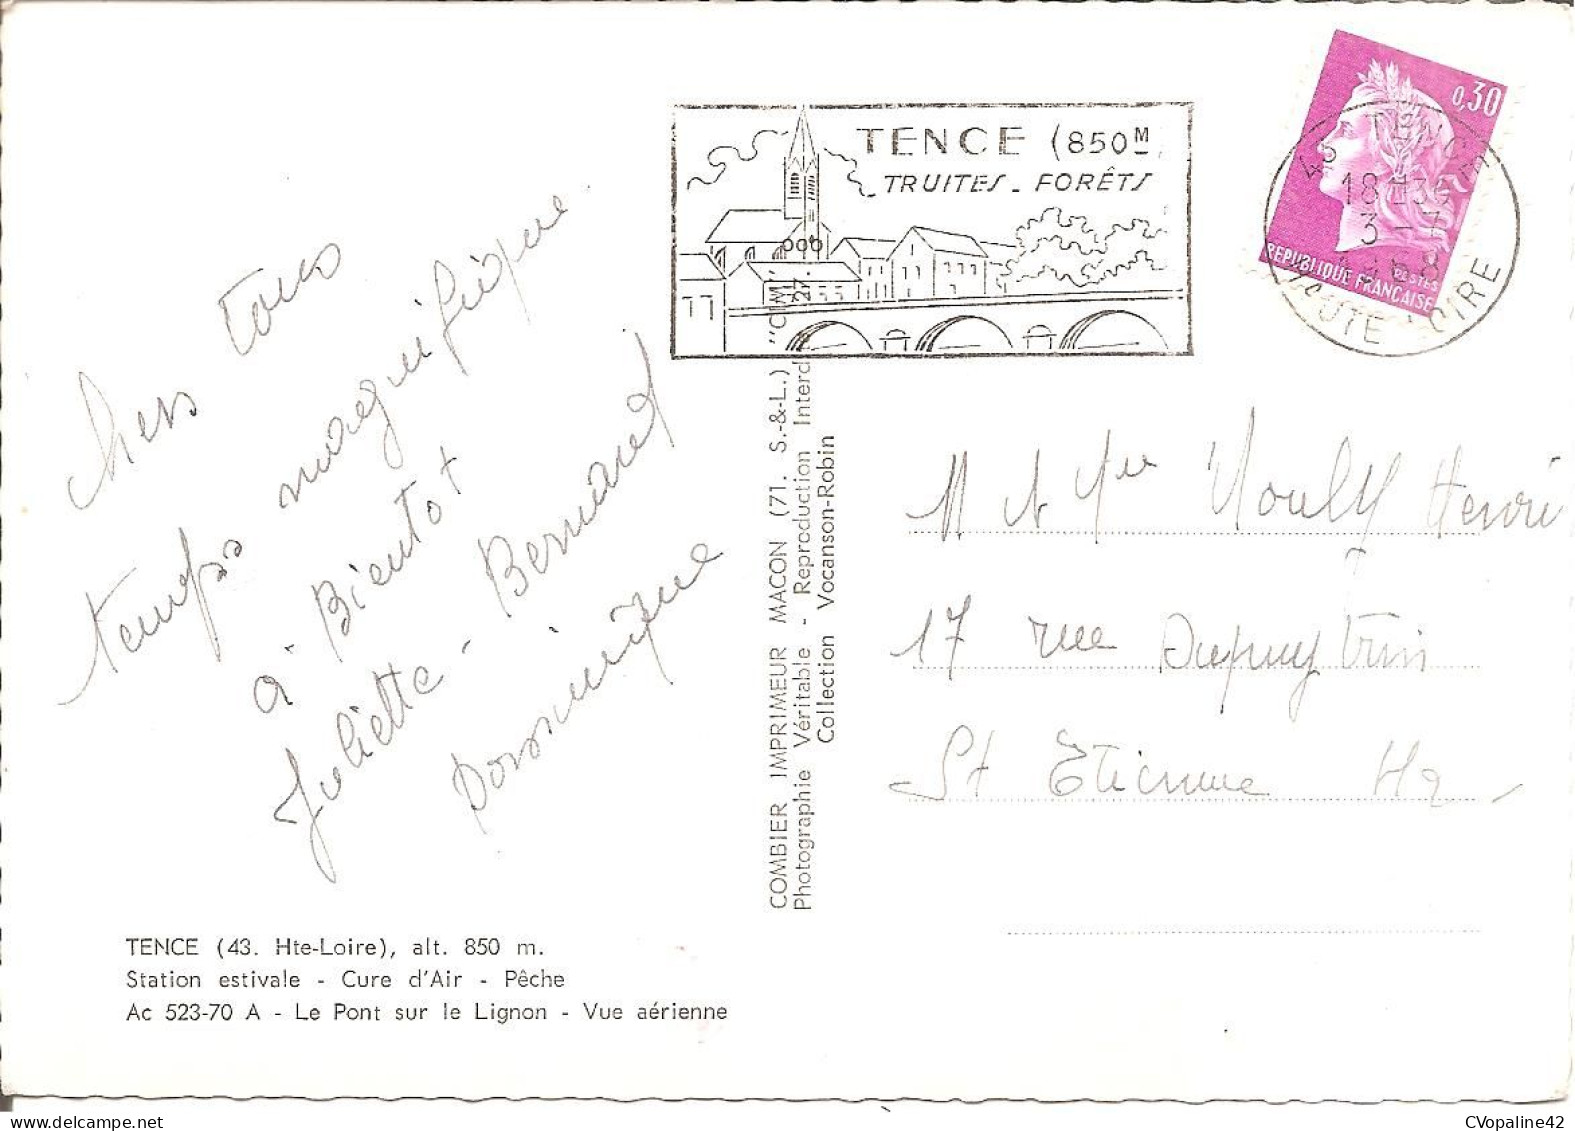 TENCE (850M
TRUITES - FORÊTS
0,30
REPUBLIQUE FRANCAISE
POSTES
43 TENCE
18-30
3-7
1968
HAUTE LOIRE
chers tous
temps magnifique.
à Bientot
Juliette - Bernard
Dominique
COMBIER IMPRIMEUR MACON (71. S.-&-L.) "CIM"
Photographie Véritable - Reproduction Interd
Collection Vocanson-Robin
M et Me Henri
17 rue Dupuytrin
St Etienne H2 -
TENCE (43. Hte-Loire), alt. 850 m.
Station estivale - Cure d'Air - Pêche
Ac 523-70 A - Le Pont sur le Lignon - Vue aérienne
CVopaline42